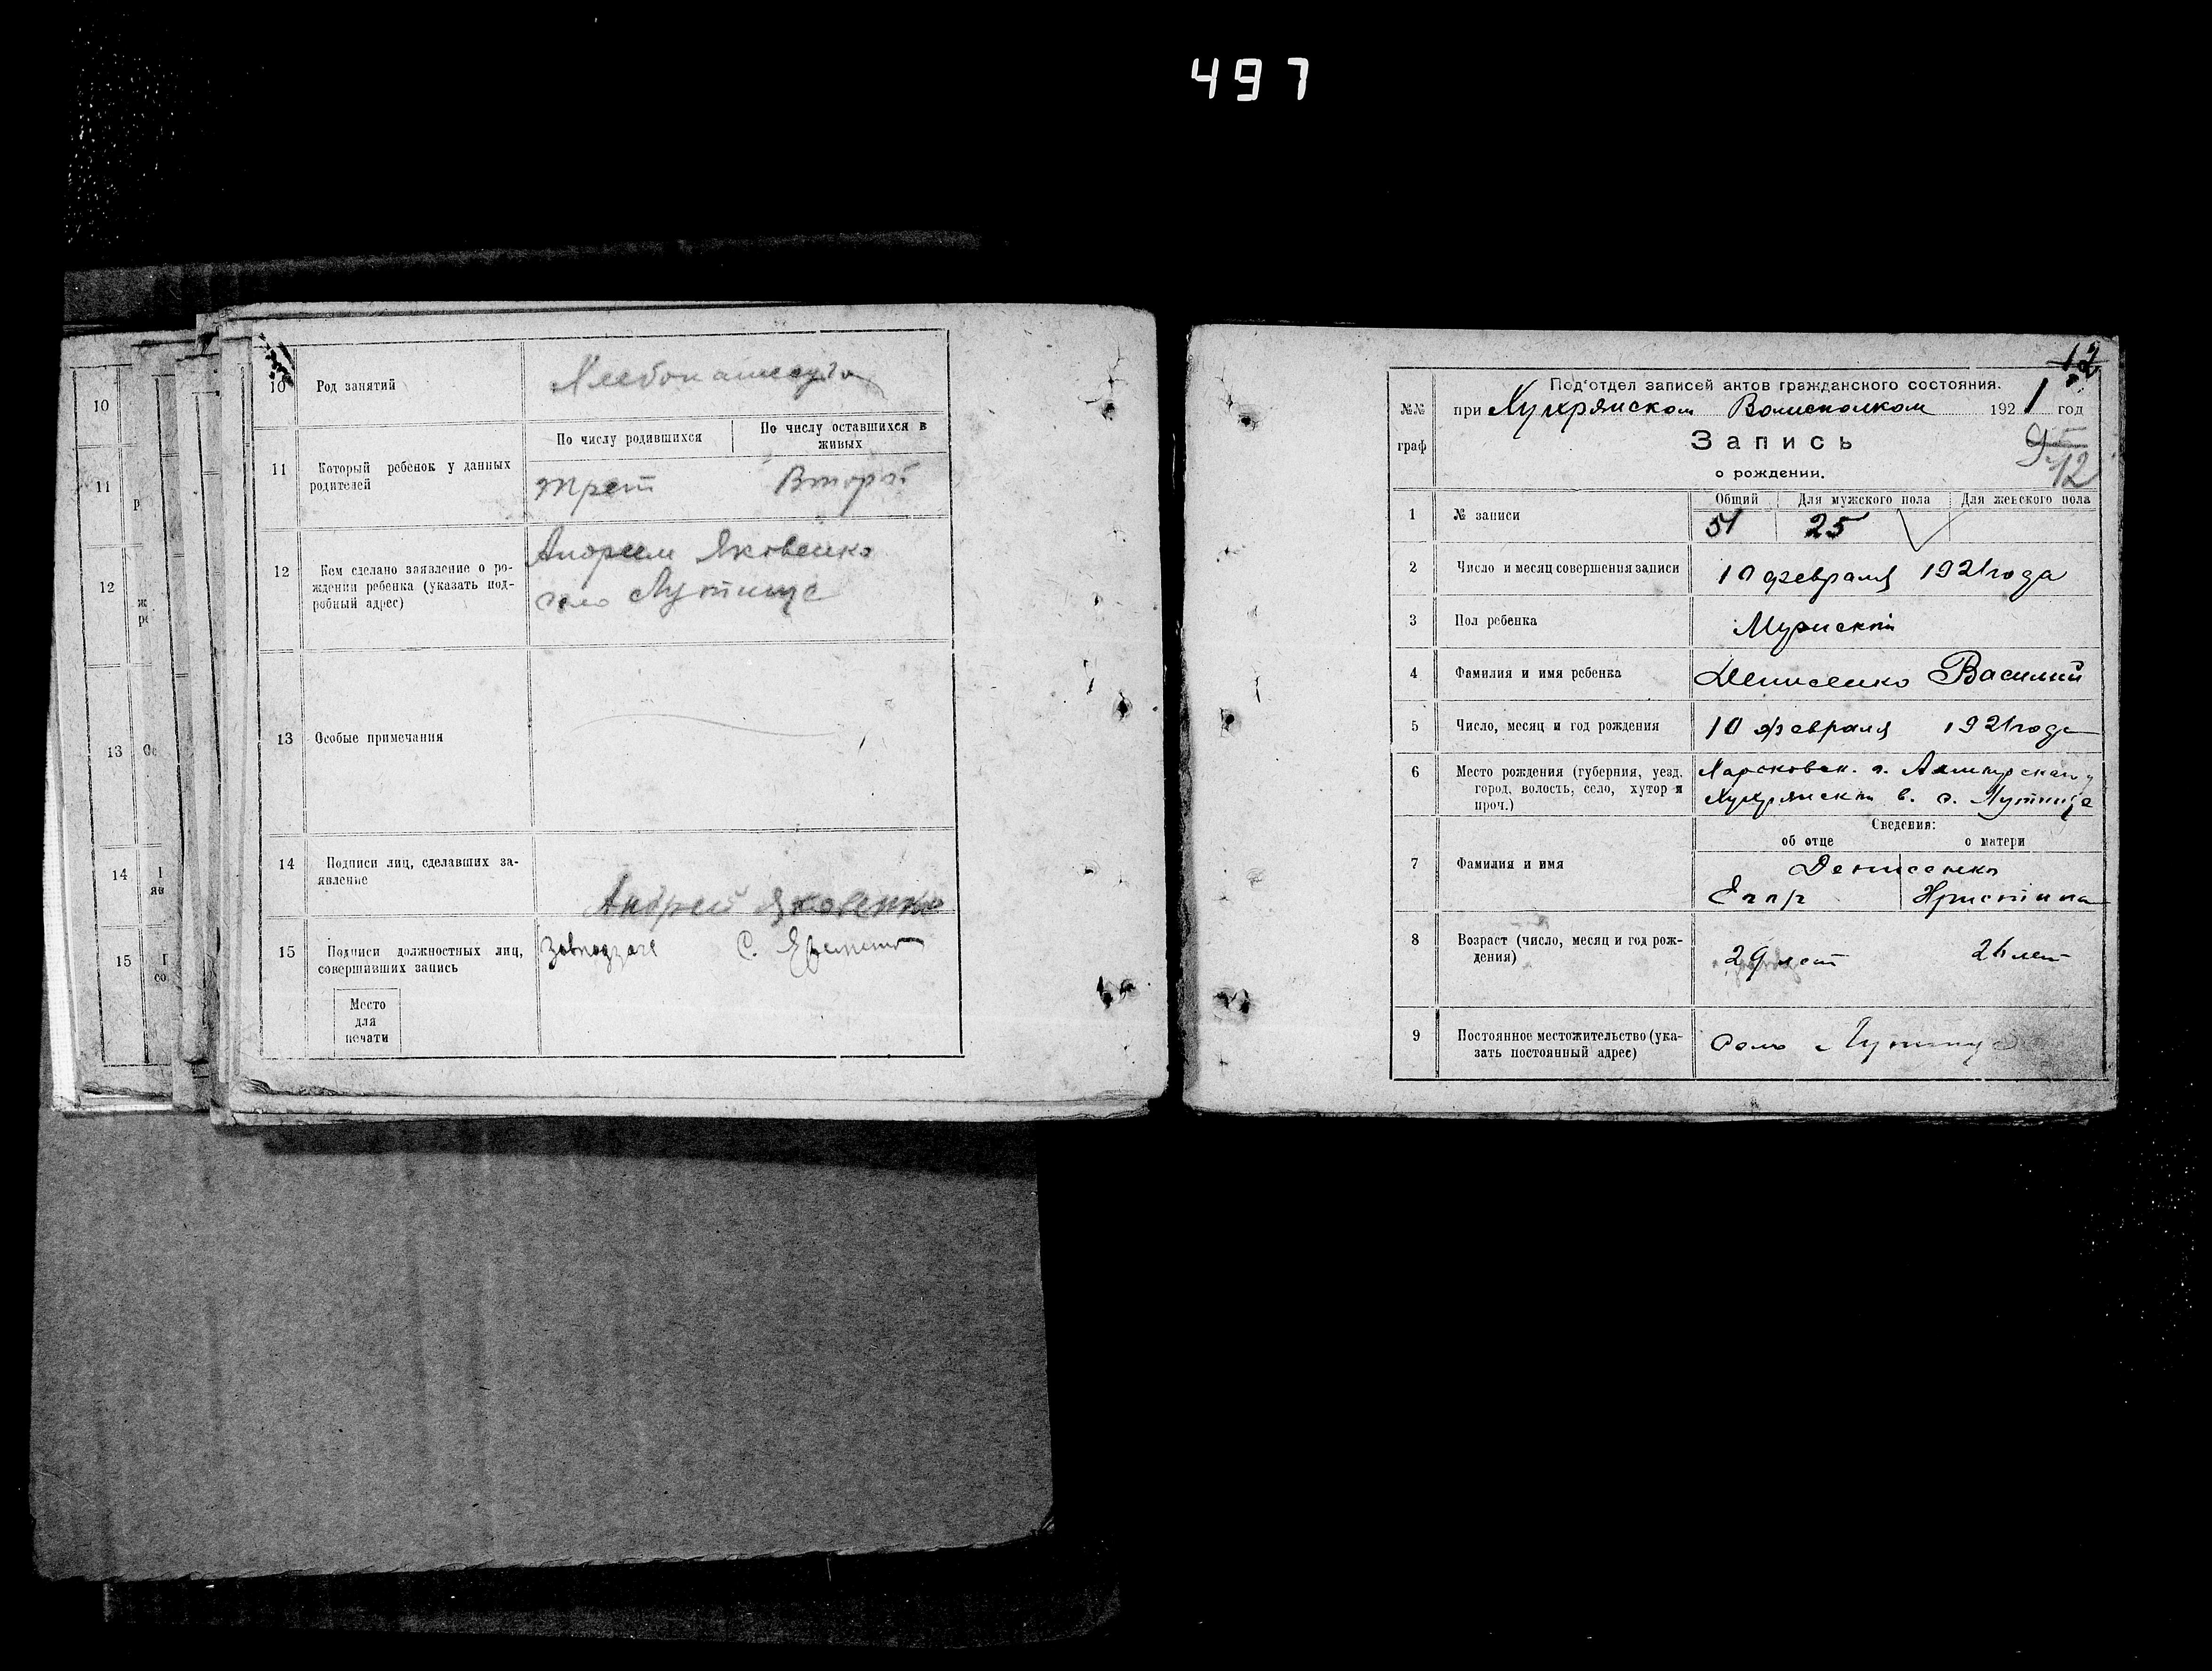 497
10
11
р
12
ж
рс
13
Ос
14
яв
15
со
10 Род занятий
Хлебопашец
11 Который ребенок у данных
родителей
По числу родившихся
По числу оставшихся в
живых
трет Второй
12 Кем сделано заявление о ро-
ждении ребенка (указать под-
робный адрес)
Андреем Яковенко
село Лутище
13 Особые примечания
14 Подписи лиц, сделавших за-
явление
Андрей Яковенко
15 Подписи должностных лиц,
совершивших запись
С.
Место
для
печати
12
Под'отдел записей актов гражданского состояния.
№№ при Хухрянском Волисполком 1921 год
граф
Запись
о рождении.
12
Общий Для мужского пола Для женского пола
1 № записи 51 25
2 Число и месяц совершения записи 10 февраля 1921 года
3 Пол ребенка Мужской
4 Фамилия и имя ребенка Денисенко Василий
5 Число, месяц и год рождения 10 февраля 1921 года
6 Место рождения (губерния, уезд,
город, волость, село, хутор и
проч.)
Харьковск. г. Ахтырского у
Хухрянской в. с. Лутище
Сведения:
об отце о матери
7 Фамилия и имя
Денисенко
Егор Христина
8 Возраст (число, месяц и год рож-
дения)
29 лет 26 лет
9 Постоянное местожительство (ука-
зать постоянный адрес)
село Лутище